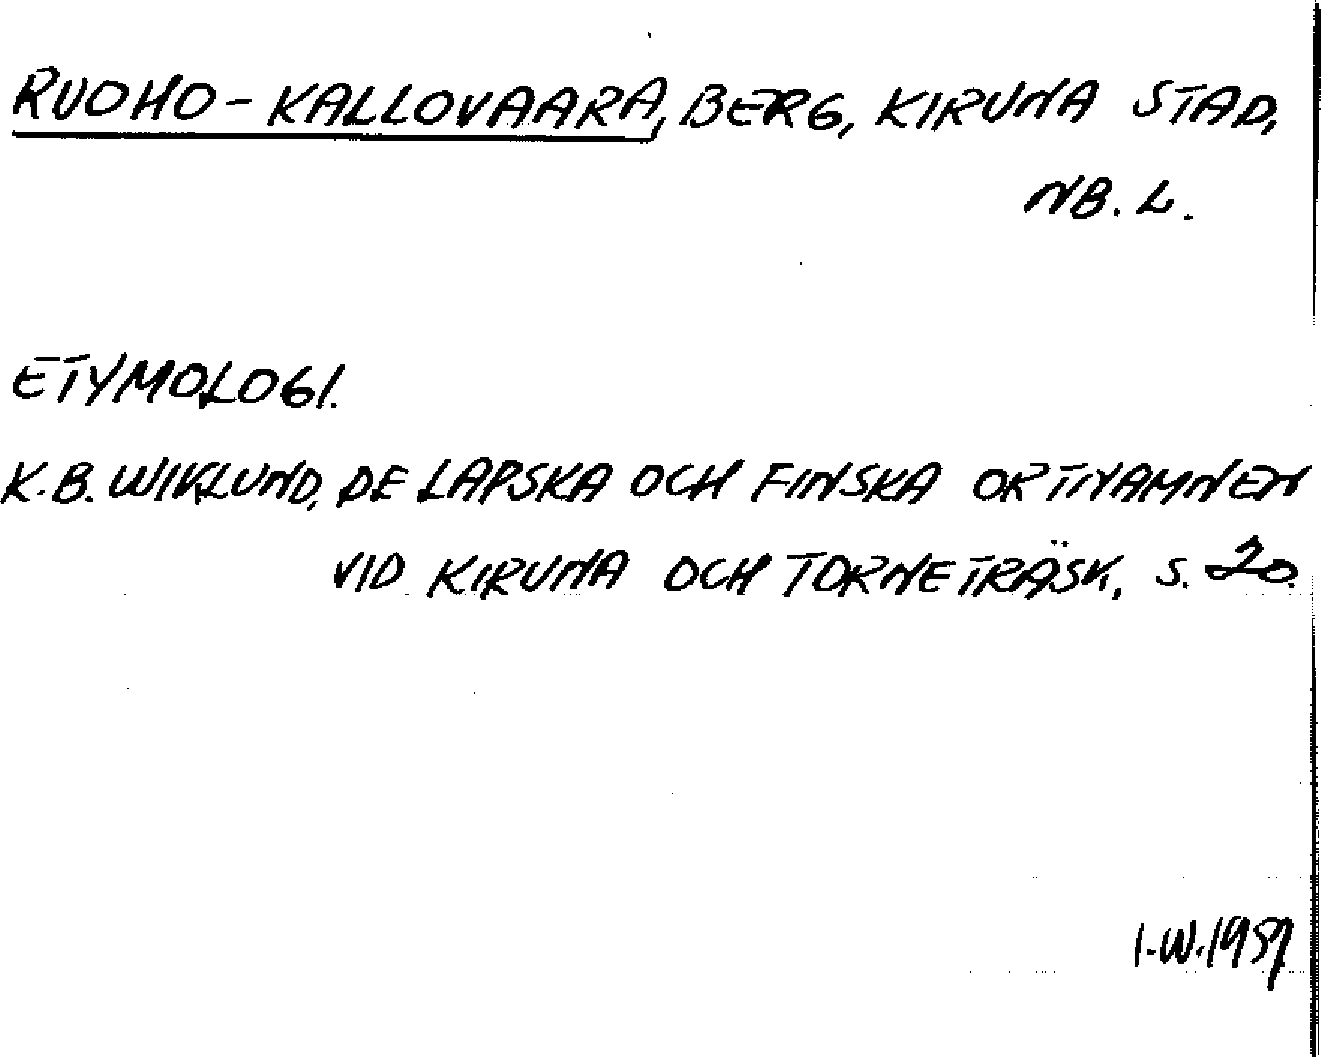 RUOHO-KALLOVAARA, BERG, KIRUNA STAD,
NB. L.
ETYMOLOGI.
K.B. WIKLUND, DE LAPSKA OCH FINSKA ORTNAMNEN
VID KIRUNA OCH TORNETRÄSK, S. 20.
I.W. 1959